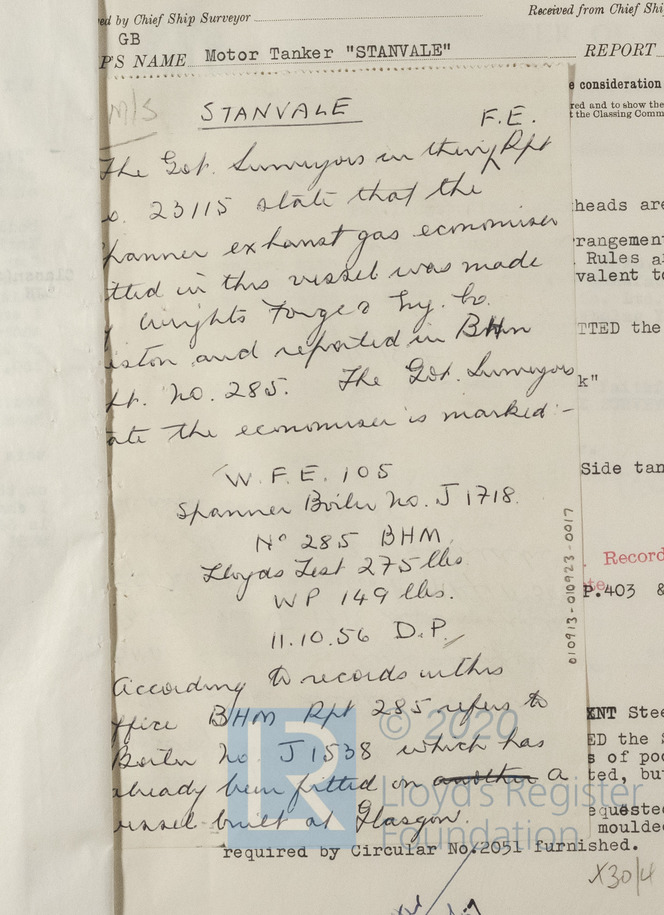 ed by Chief Ship Surveyor
Received from Chief Shi
GB
P'S NAME Motor Tanker "STANVALE" REPORT
e consideration
red and to show the
t the Classing Comm
M/S
STANVALE
F.E.
The Got. Surveyors in their Rpt
o. 23115 state that the
panner exhaust gas economiser
tted in this vessel was made
y Wrights Forge & Eng. Co.
iston and reported in BHm
pt. No. 285. The Got. Surveyors
ate the economiser is marked:-
W.F.E. 105
Spanner Boiler No. J 1718.
No 285 BHM
Lloyds Test 275 lbs
WP 149 lbs.
11.10.56 D.P.
According to records in this
ffice BHM Rpt 285 refers to
Boiler No J 1538 which has
already been fitted on another a
vessel built at Glasgow.
010913-010923-0017
heads are
rrangement
Rules a
valent to
TTED the
k"
Side tan
Record
te.
P.403 &
ENT Stee
ED the S
s of poo
ted, bu
equeste
moulde
required by Circular No.2051 furnished.
X30/4
LR
© 2020
Lloyd's Register
Foundation